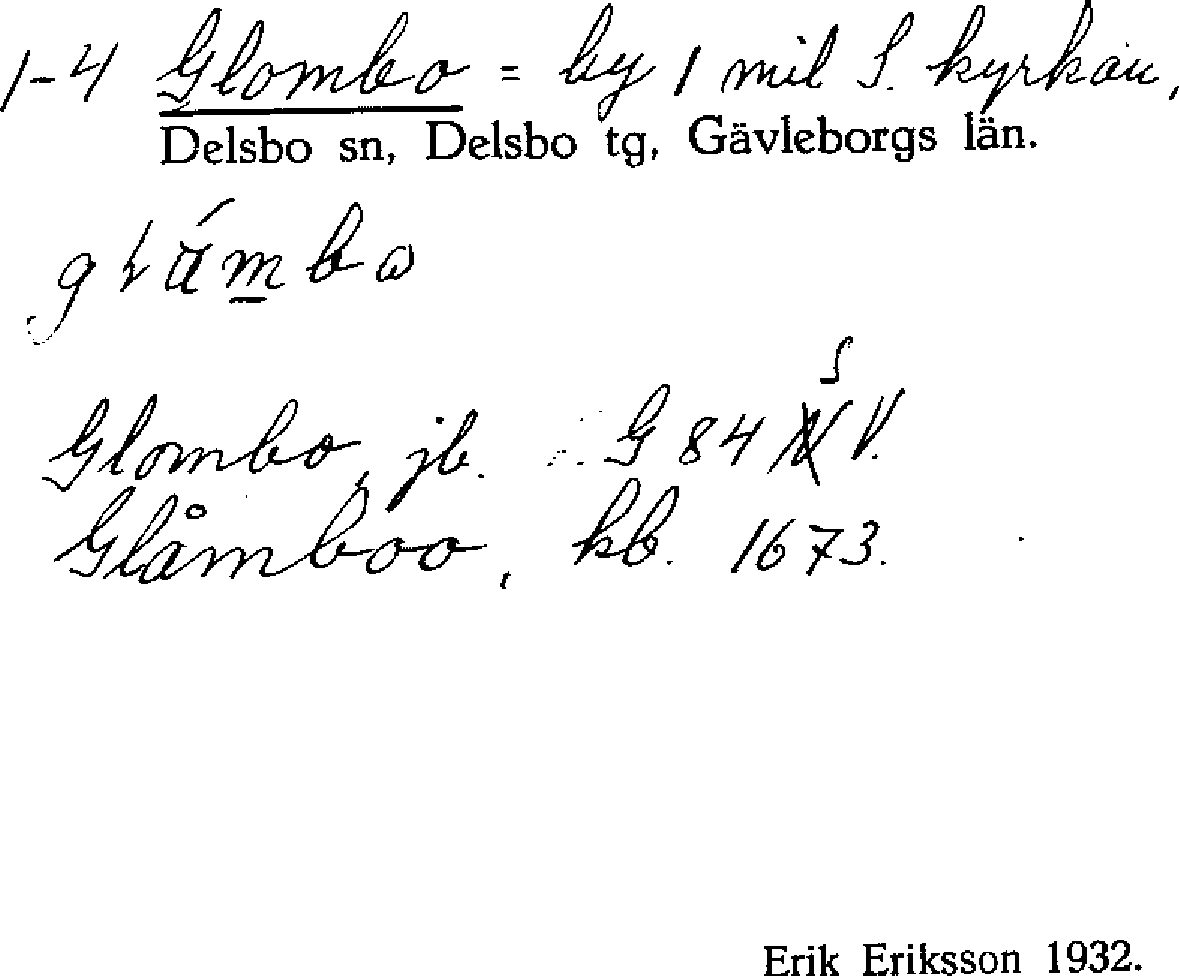 1-4 Glombo = by 1 mil S. kyrkan,
Delsbo sn, Delsbo tg, Gävleborgs län.
S
Glombo, jb. G 84 V.
Glåmboo, kb. 1673.
Erik Eriksson 1932.